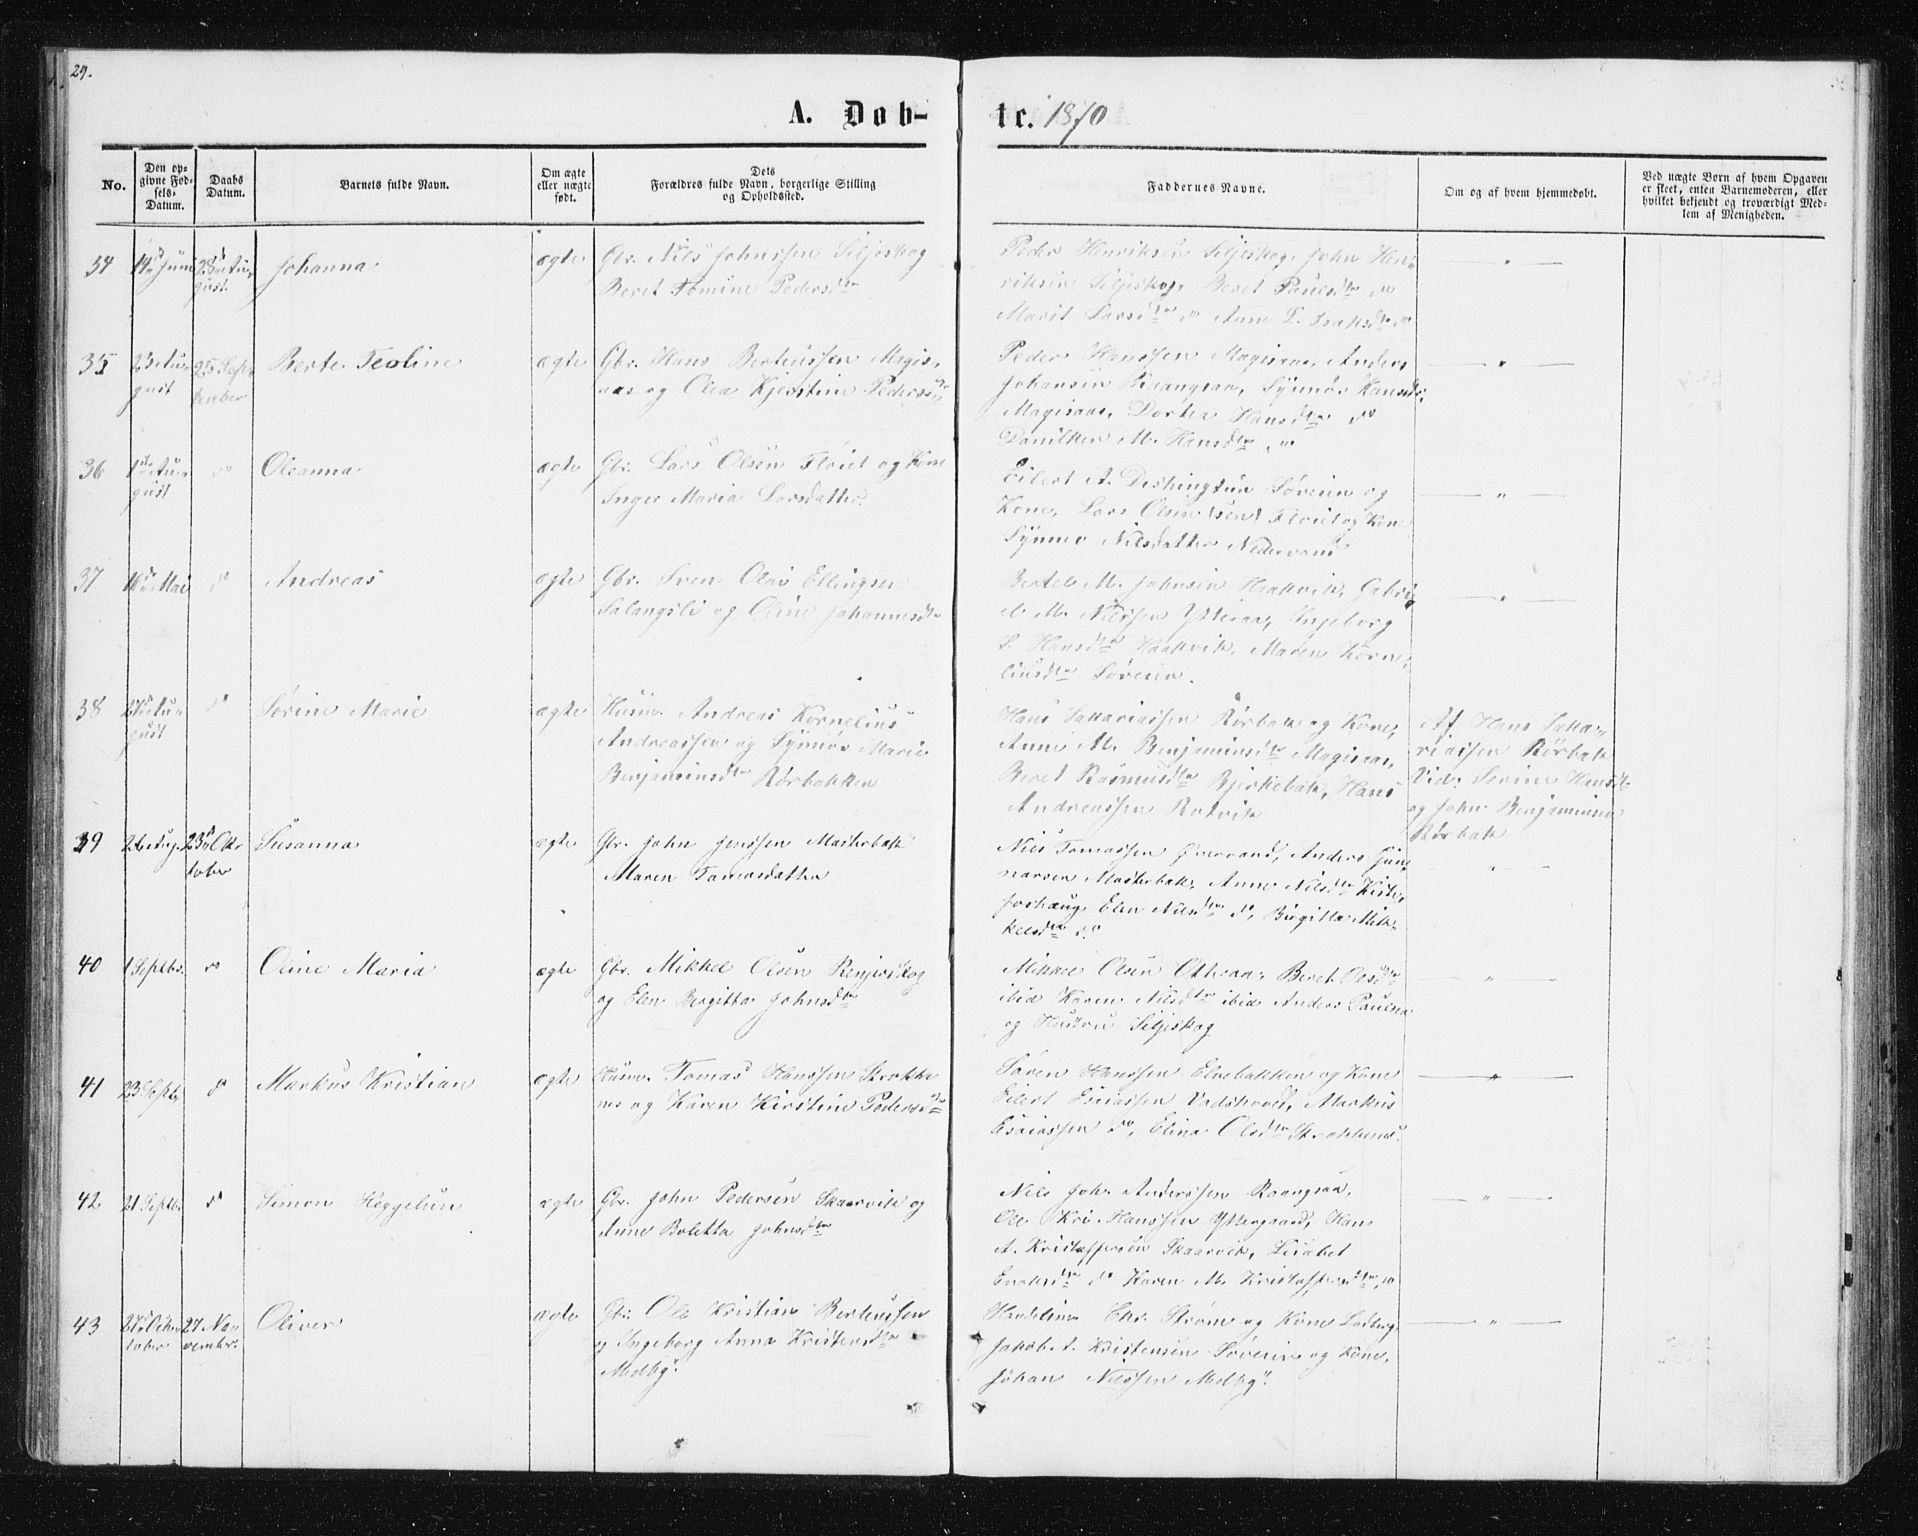 29.
A. Døb-
te. 1870
No.
Den op-
givne Fød-
sels-
Datum.
Daabs
Datum.
Barnets fulde Navn.
Om ægte
eller uægte
født.
Dets
Forældres fulde Navn, borgerlige Stilling
og Opholdssted.
Faddernes Navne.
Om og af hvem hjemmedøbt.
Ved uægte Børn af hvem Opgaven
er skeet, enten Barnemoderen, eller
hvilket bekjendt og troværdigt Med-
lem af Menigheden.
34
14de Juni
28de Au-
gust.
Johanna
ægte
Gbr. Nils Johnssen Siljeskog
Beret Tomine Pedersdtr
Peder Henriksen Siljeskog, John Hen-
riksen Siljeskog, Beret Paulsdtr do
Marit Larsdtr do Anne L. Isaksdtr do
"
35
23 Au-
gust
25 Sept-
tember
Berte Teoline
ægte
Gbr. Hans Berteussen Magis-
aas og Olea Kjerstine Pedersdtr
Peder Hanssen Magisaas, Anders
Johansen Raangsaa, Synnøv Hansdtr
Magisaas, Dortea Hansdtr do
M. Hansdtr do
"
36
1ste Au-
gust
do
Oleanna
ægte
Gbr. Lars Olsen Floiet og Kone
Inger Maria Larsdatter.
Eilert A. Deshington Søveien og
Kone, Lars Olsen (sen) Floiet og Kone
Synnev Nilsdatter Nedervand
"
37
16de Mai
do
Andreas
ægte
Gbr. Sven Olav Ellingsen
Salangsli og Oline Johannesdtr
Bertel M. Johnsen Haakvik, Gabri-
el M. Nilssen Ytteraa, Ingeborg
S. Hansdtr Haakvik, Maren Korne-
liusdtr Søveien.
"
38
27de Au-
gust
do
Sørine Marie
ægte
Husm. Andreas Kornelius
Andreassen og Synnøv Marie
Benjaminsdtr Rørbakken
Hans Sakariassen Rørbak og Kone,
Anne M. Benjaminsdtr Magisaas,
Beret Rasmusdtr Bjerkebak, Hans
Andreassen Rotvik
Af Hans Saka-
riassen Rørbak
Vid: Serine Hansdtr
og John Benjaminsen
Rørbak
39
26 Aug.
23de Ok-
tober
Susanna
ægte
Gbr. John Jenssen Masterbak
Maren Tomasdatter
Nils Tomassen Overvand, Anders Gun-
narsen Masterbak, Anne Nilsdtr Kiste-
foshaug, Elen Nilsdtr do, Birgitta Mik-
kelsdtr do
"
40
1 Septbr.
do
Oline Maria
ægte
Gbr. Mikkel Olsen Renjerskog
og Elen Bergitta Johnsdtr
Mikkel Olsen Otteraa, Beret Olsdtr
ibid Karen Nilsdtr ibid Anders Paulsen
og Hustru Siljeskog
"
41
23 Septbr
do
Markus Kristian
ægte
Husm. Tomas Hanssen Strokke
nes og Karen Kirstine Pedersdtr
Søren Hanssen Elvebakken og Kone
Eilert Esaiassen Vadshoved, Markus
Esaiassen do, Elina Olsdtr Strokkenes.
"
42
21 Septbr.
do
Simon Heggelun
ægte
Gbr. John Pedersen Skaarvik og
Anne Boletta Johnsdtr
Nils Joh. Anderssen Raangsaa,
Ole Kri. Hanssen Yttergaard, Hans
A. Kristoffersen Skaarvik, Lisabet
Enoksdtr do Karen M. Kristoffersdtr do
"
43
27de Ok-
tober
27 No-
vembr.
Oliver
ægte
Gbr. Ole Kristian Berteussen
og Ingeborg Anna Kristensdtr
Melby.
Chr. Strøm og Kone Ladberg,
Jakob A. Kristensen Søveien og Kone,
Johan Nilssen Melby.
"